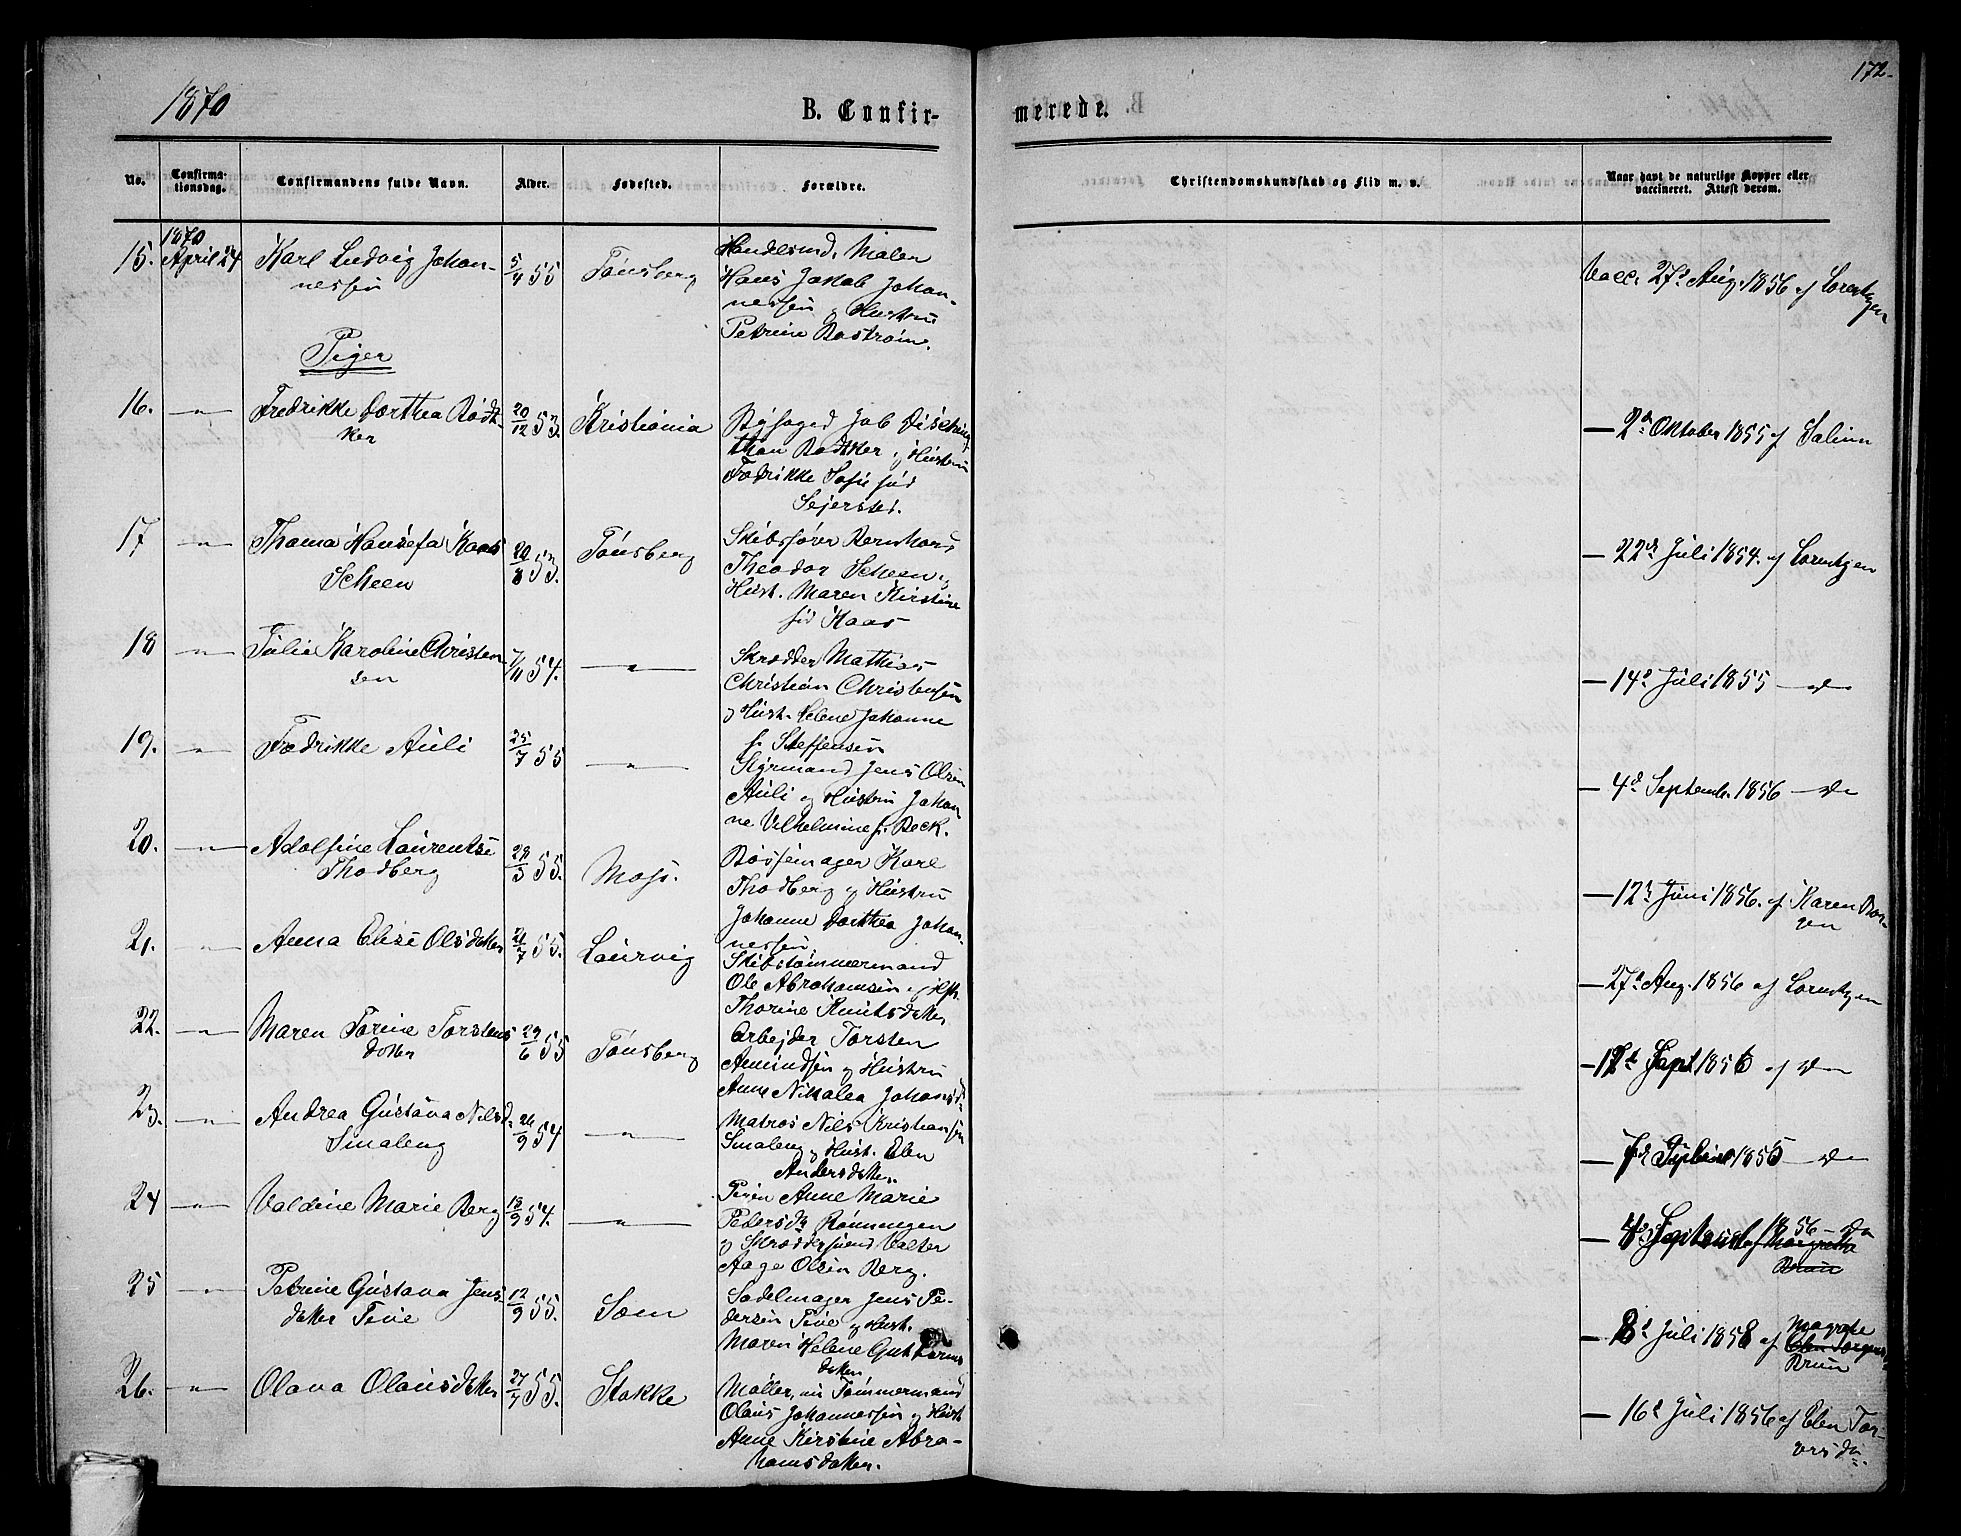 1870
B. Confir-
merede.
172.
No.
Confirma-
tionsdag.
Confirmandens fulde Navn.
Alder.
Fødested.
Forældre.
Christendomskundskab og Flid m. v.
Naar havt de naturlige Kopper eller
vaccineret. Attest derom.
1870
15. April 24 Karl Ludvig Johan-
nessen
5/4 55 Tønsberg
Handelsmd. Maler
Hans Jakob Johan-
nessen og Hustru
Petrine Bostrøm.
Vacc. 27d Aug. 1856 af Lorentzen
Piger
16. —"— Fredrikke Dorthea Rødt-
ker
20/12 53. Kristiania
Byfoged Job
Rødtker og Hustru
Fredrikke Sofie fød
Sejersted.
— 2d Oktober 1855 af
17 —"— Thoma Hansefa Kaas
Scheen
20/8 53. Tønsberg
Skibsfører Bernhard
Theodor Scheen og
Hust. Maren Kirstine
fød Kaas
— 22d Juli 1854. af Lorentzen
18 —"— Julie Karoline Christen
sen
7/11 54. —"—
Skrædder Mathias
Christian Christensen
og Hust. Helene Johanne
f. Steffensen
— 14d Juli 1855 — Do
19. —"— Fredrikke Auli
25/7 55 —"—
Styrmand Jens Olsen
Auli og Hustru Johan
ne Vilhelmine f. Beck.
— 4d Septemb. 1856 — Do
20. —"— Adolfine Laurentse
Thodberg
28/3 55. Moss.
Bøssemager Karl
Thodberg og Hustru
Johanne Dorthea Johan-
nessen
— 12d Juni 1856. af Karen Bor-
gen
21. —"— Anna Elise Olsdatter
21/7 55. Laurvig
Skibstømmermand
Ole Abrahamsen og
Thorine Knutsdatter
— 27d Aug. 1856 af Lorentzen
22. —"— Maren Torine Torstens
datter
29/6 55 Tønsberg
Arbejder Torsten
Amundsen og Hustru
Anne Nikalea Johansd.
— Sept 1856 af Do
23. —"— Andrea Gustava Nilsd.
Smaleng
26/9 54 —"—
Matros Nils Kristiansen
Smaleng og Hust. Elen
Andersdatter.
— 1855 — Do
24 —"— Valdine Marie Berg
18/9 54. —"—
Pigen Anne Marie
Pedersdr Rønningen
og Skræddersvend Valter
Aage Olsen Berg.
— 1856 — Do
Margrethe
Bruun
25 —"— Petrine Gustava Jens-
datter Teie
12/9 55. Sem
Sadelmager Jens Pe-
dersen Teie og Hust.
Maren Helene Guttorms
datter
— 8d Juli 1858 af Magrete
Bruun
26. —"— Olava Olausdatter
27/7 55. Stokke
Møller, nu Tømmermand
Olaus Johannessen og Hust
Anne Kirstine Abra-
hamsdatter.
— 16d Juli 1856 af Elen Tor-
gersdr.